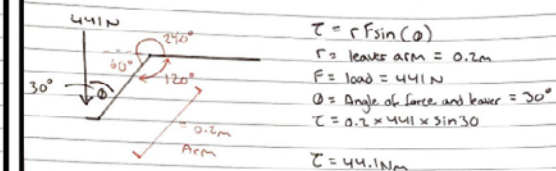 441N
240°
60°
120°
30°
Ø
0.2m
Arm
τ = rFsin(Ø)
r = leaver arm = 0.2m
F = load = 441N
Ø = Angle of force and leaver = 30°
τ = 0.2 × 441 × sin30
τ = 44.1Nm